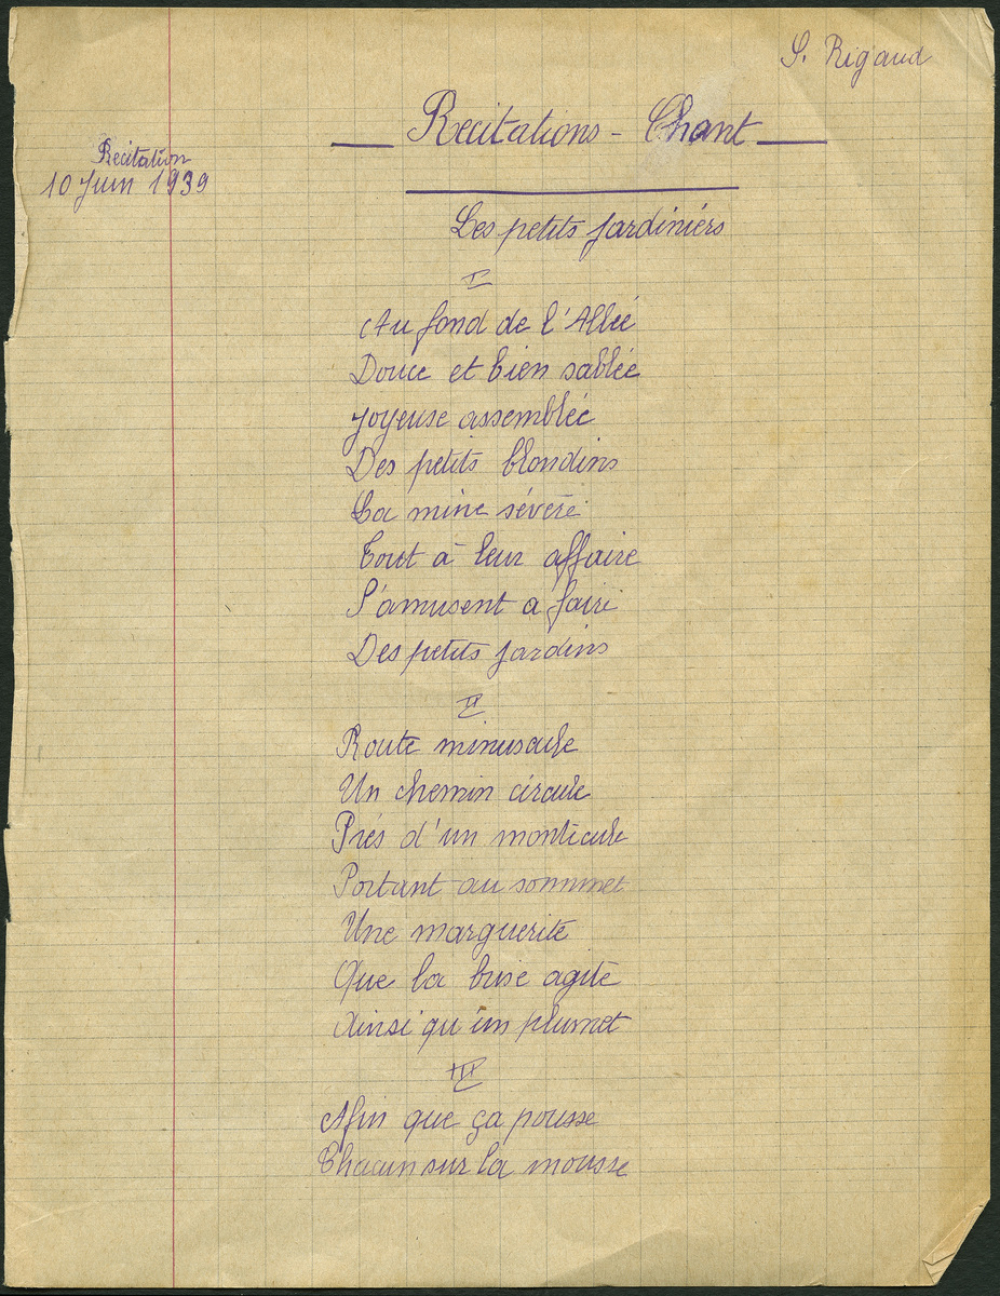 S. Rigaud
Recitations - Chant
Recitation
10 Juin 1939
Les petits jardiniérs
I
Au fond de l'Allée
Douce et bien sablée
Joyeuse assemblée
Des petits blondins
La mine sévére
Tout à leur affaire
S'amusent a faire
Des petits jardins
II
Route minuscule
Un chemin circule
Prés d'un monticule
Portant au sommet
Une marguerite
Que la brise agite
Ainsi qu'un plumet
III
Afin que ça pousse
Chacun sur la mousse